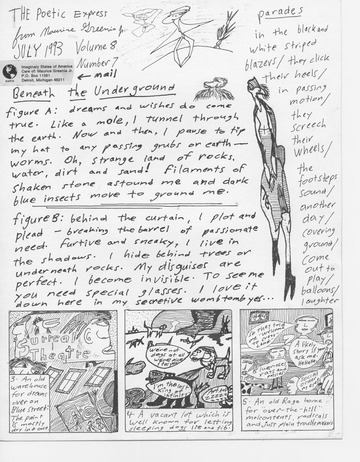 THE Poetic Express
from Maurice Greenia Jr.
JULY 1993 Volume 8
Number 7
Imaginary States of America
Care of: Maurice Greenia Jr.
P.O. Box 11261
Detroit, Michigan 48211
← mail
Beneath the Underground
figure A: dreams and wishes do come
true. Like a mole, I tunnel through
the earth. Now and then, I pause to tip
my hat to any passing grubs or earth-
worms. Oh, strange land of rocks,
water, dirt and sand! Filaments of
shaken stone astound me and dark
blue insects move to ground me.
figure B: behind the curtain, I plot and
plead - breaking the barrel of passionate
need. Furtive and sneaky, I live in
the shadows. I hide behind trees or
underneath rocks. My disguises are
perfect. I become invisible. To see me
you need special glasses. I love it
down here in my secretive wombtomb yes...
parades
in the black and
white striped
blazers/ they click
their heels/
in passing
motion/
they
screech
their
wheels/
the
footsteps
sound/
another
day/
covering
ground/
come
out to
play/
balloons/
laughter
Surreal
Theatre
3- An old
warehouse
for dreams
over on
Blue Street.
The paint
is mostly
dry in our
We're not
dogs at all
I'm the
king of
4 A vacant lot which is
well known for letting
sleeping dogs lie and fib.
5- An old Rage home
for "over-the-hill"
malcontents, radicals
and just plain troublemakers